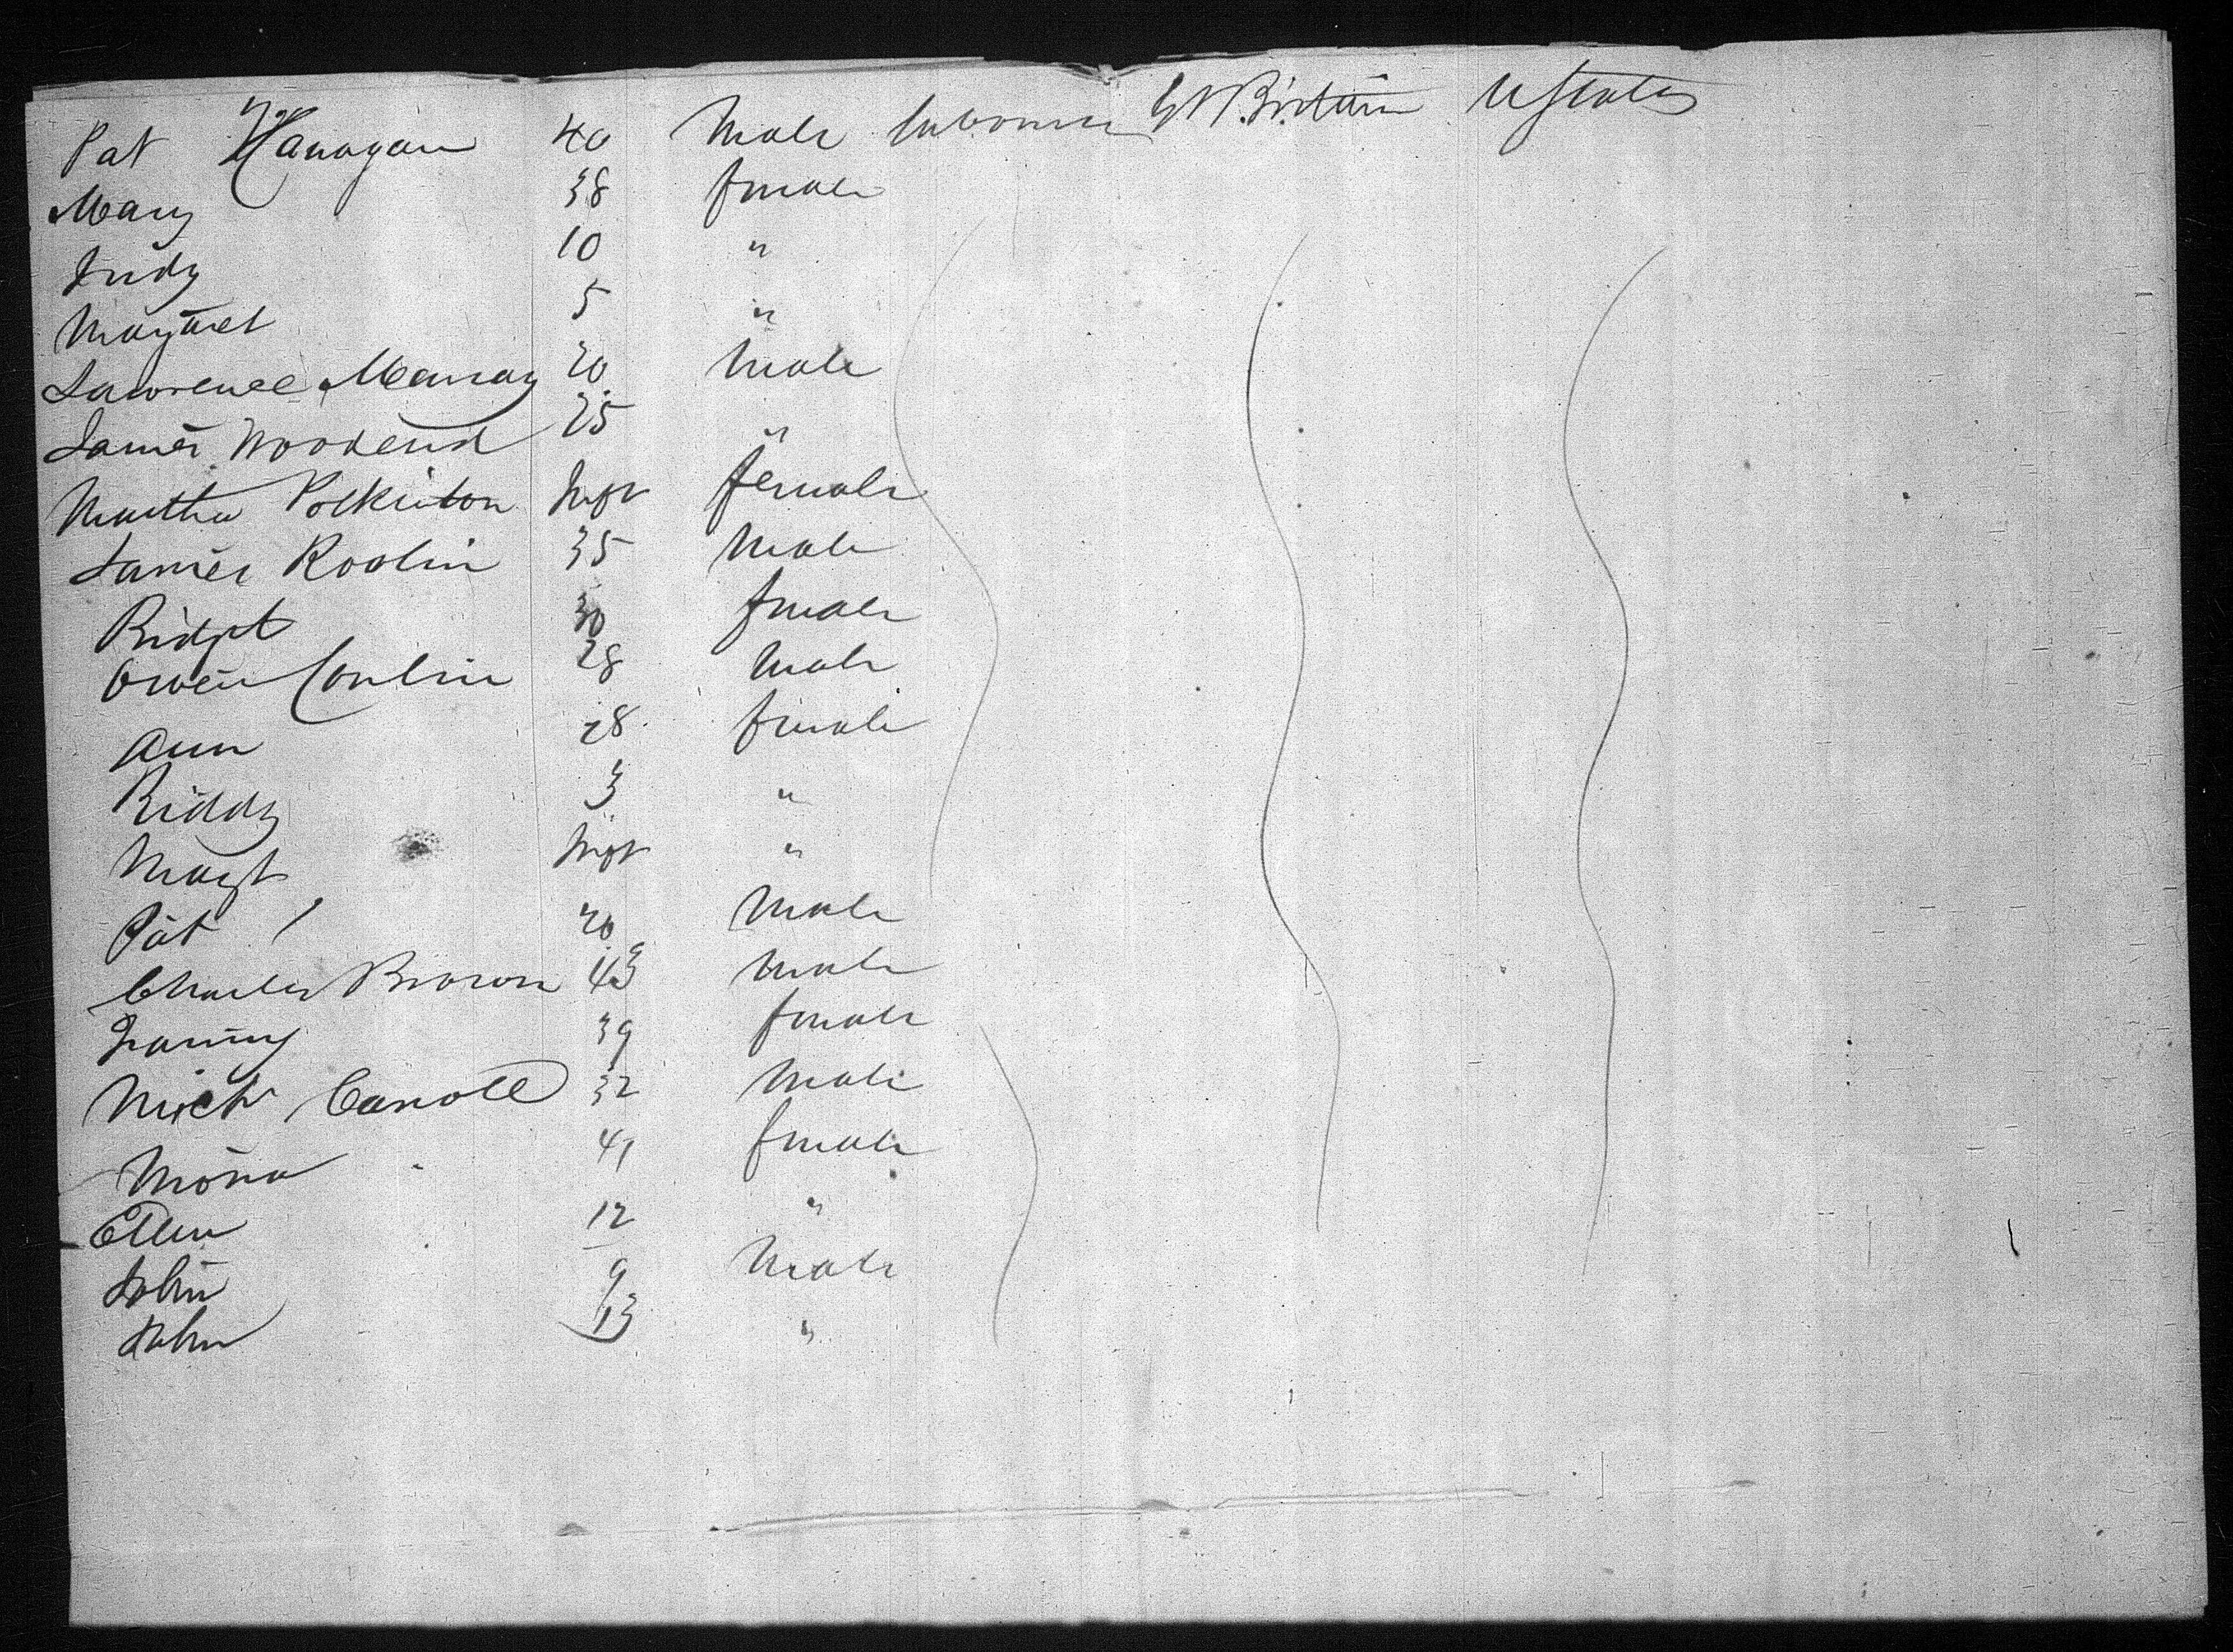 Pat Flanagan 40 Male Labourer Gt. Britain U States
Mary 38 female
Judy 10 "
Margaret 5 "
Lawrence Murray 20 Male
James Woodend 25 "
Martha Polkinton Inft female
James Roslin 35 Male
Bidget 30 female
Owen Conlin 28 Male
Ann 28 female
Biddy 3 "
Margt Inft "
Pat 20 Male
Charles Brown 43 Male
Fanny 39 female
Michl Carroll 32 Male
Mona 41 female
Ellen 12 "
John 9 Male
John 13 "